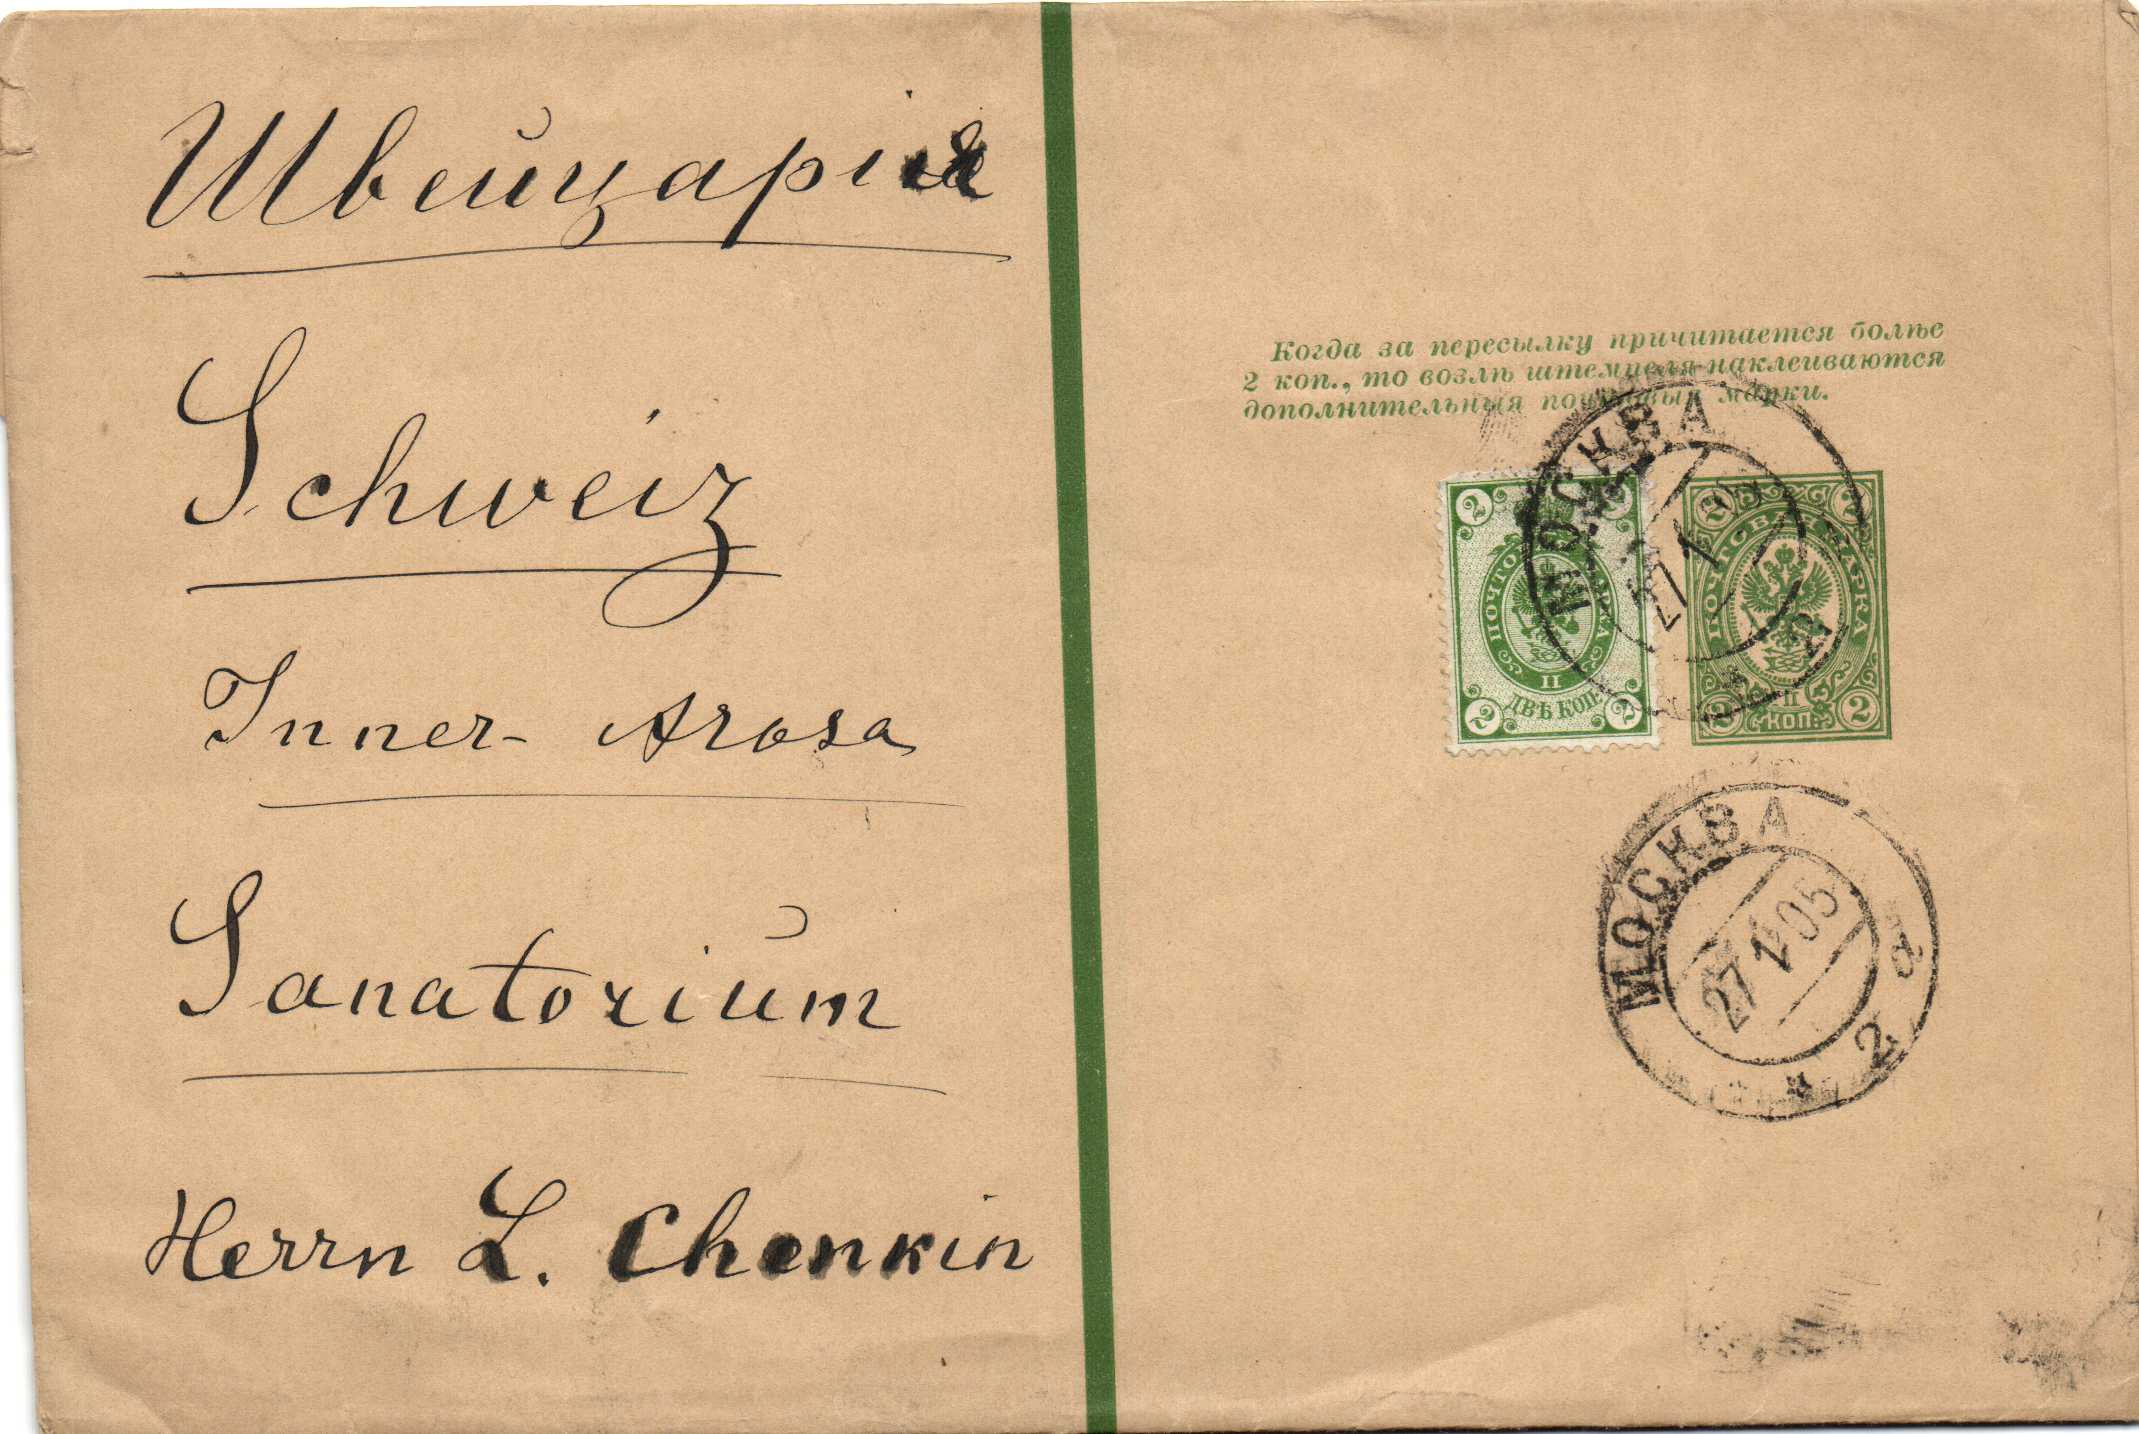 Швейцарія
Schweiz
Inner-Arosa
Sanatorium
Herrn L. Chenkin
Когда за пересылку причитается болѣе
2 коп., то возлѣ штемпеля наклеиваются
дополнительныя почтовыя марки.
МОСКВА
27 1 05
2
2 2
ПОЧТОВАЯ МАРКА
II
ДВѢ КОП.
2 2
2 2
ПОЧТОВАЯ МАРКА
II
КОП.
2 2
МОСКВА
27 1 05
2